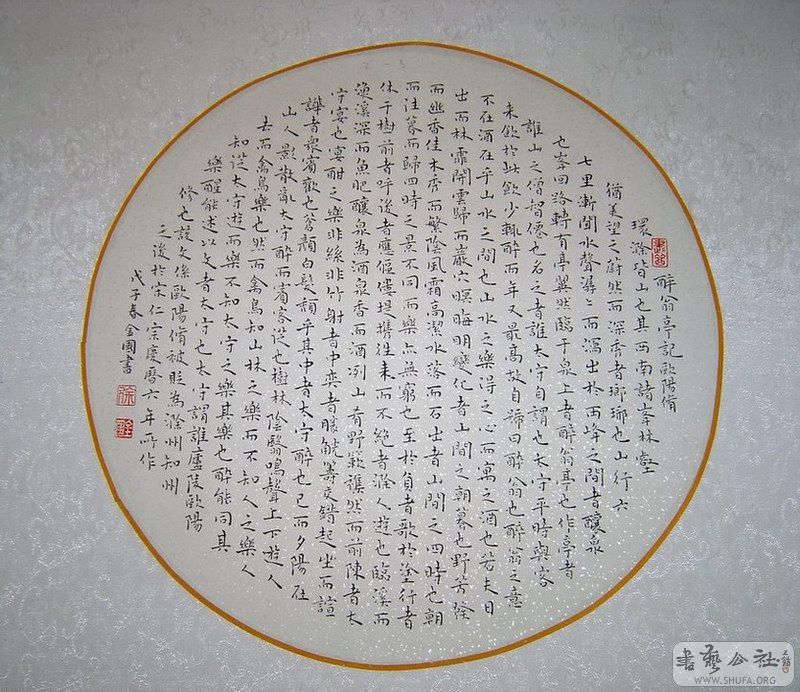 醉翁亭記歐陽脩
環滁皆山也其西南諸峯林壑
猶美望之蔚然而深秀者瑯琊也山行六
七里漸聞水聲潺〻而瀉出於兩峰之間者釀泉
也峯回路轉有亭翼然臨于泉上者醉翁亭也作亭者
誰山之僧智僊也名之者誰太守自謂也太守平時與客
來飲於此飲少輒醉而年又最高故自號曰醉翁也醉翁之意
不在酒在乎山水之間也山水之樂得之心而寓之酒也若夫日
出而林霏開雲歸而巖穴暝晦明變化者山間之朝暮也野芳發
而幽香佳木秀而繁陰風霜高潔水落而石出者山間之四時也朝
而往暮而歸四時之景不同而樂亦無窮也至於負者歌於塗行者
休于樹前者呼後者應傴僂提攜往來而不絕者滁人遊也臨溪而
漁溪深而魚肥釀泉為酒泉香而酒冽山肴野蔌雜然而前陳者太
守宴也宴酣之樂非絲非竹射者中奕者勝觥籌交錯起坐而諠
譁者衆賓歡也蒼顏白髮頹乎其中者太守醉也已而夕陽在
山人影散亂太守醉而賓客從也樹林陰翳鳴聲上下遊人
去而禽鳥樂也然而禽鳥知山林之樂而不知人之樂人
知從太守遊而樂不知太守之樂其樂也醉能同其
樂醒能述以文者太守也太守謂誰廬陵歐陽
修也該文係歐陽脩被貶為滁州知州
之後於宋仁宗慶曆六年所作
戊子春金國書
徐
書藝公社
WWW.SHUFA.ORG